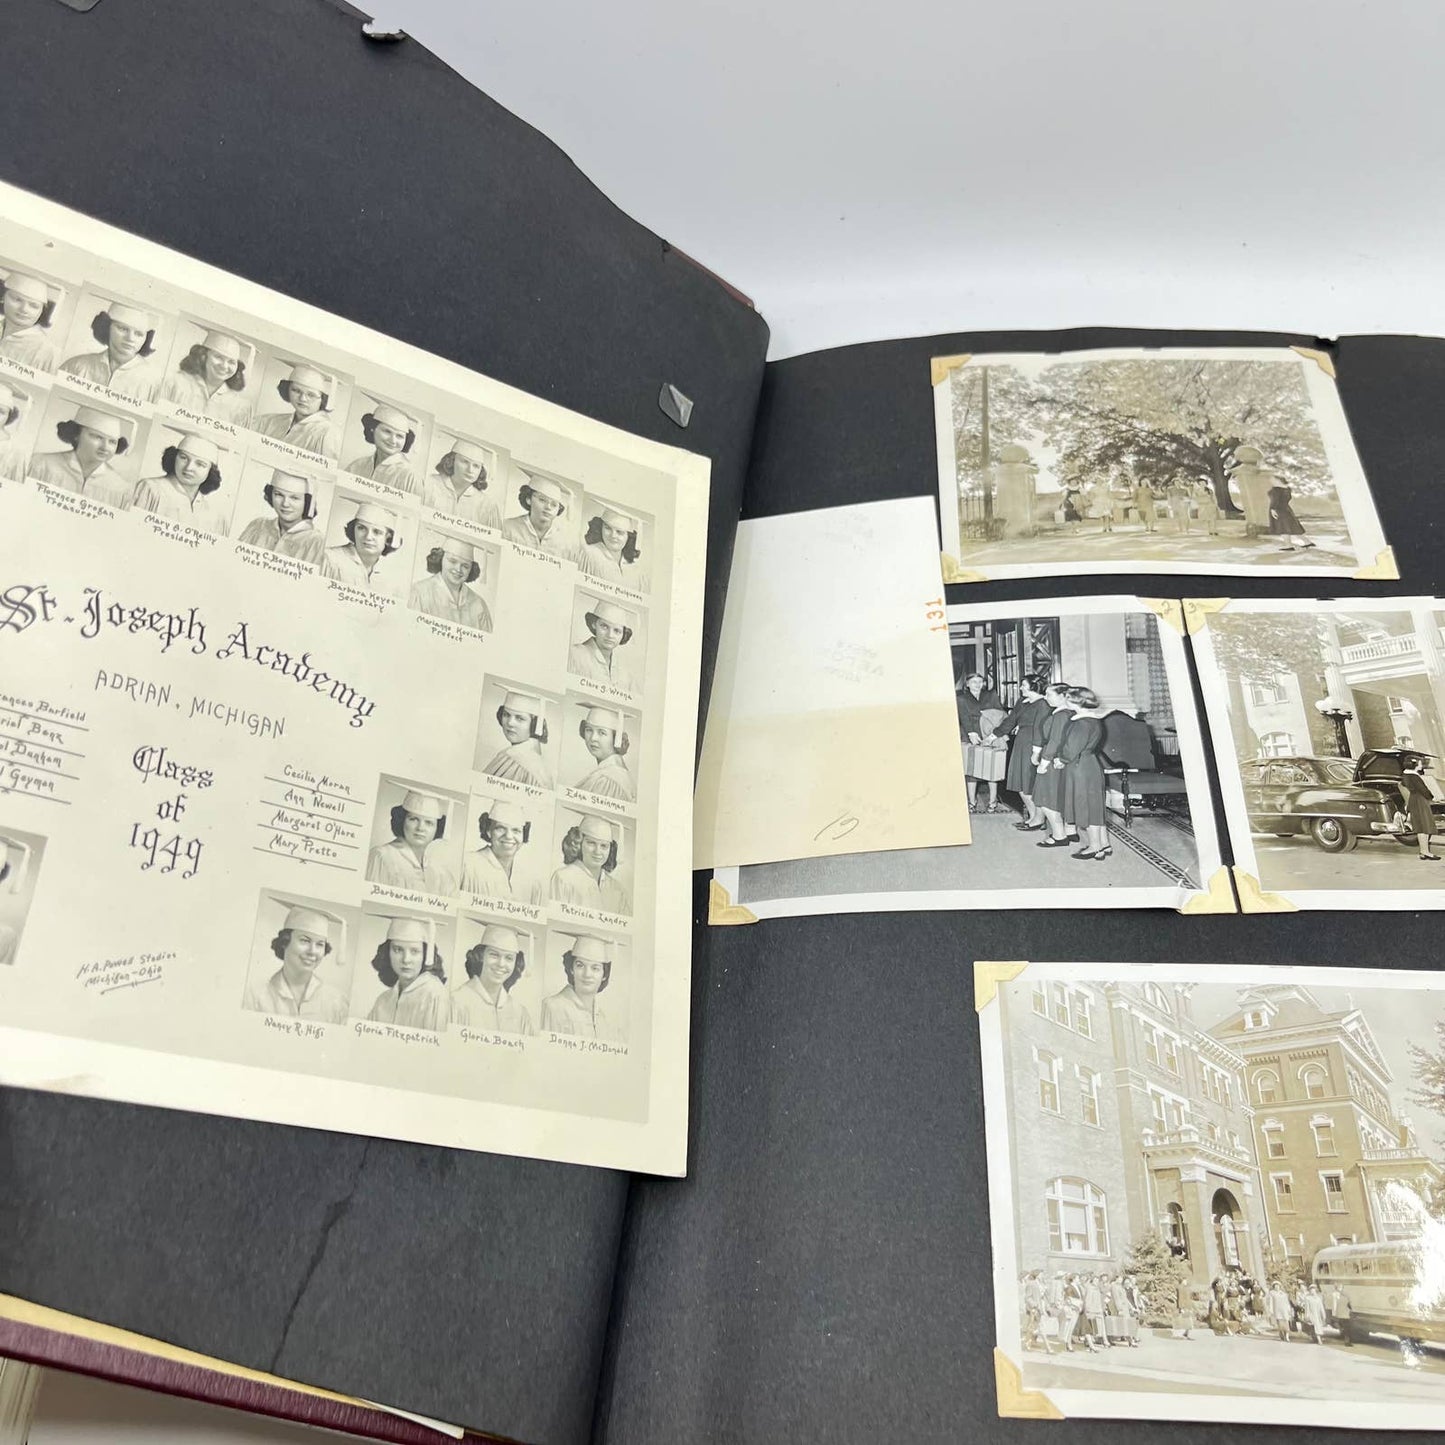 Finan
Mary A. Konieski
Mary T. Sack
Veronica Horvath
Nancy Burk
Mary C. Connors
Phyllis Dillon
Florence Mulqueen
Florence Grogan
Treasurer
Mary A. O'Reilly
President
Mary C. Beyschlag
Vice President
Barbara Keyes
Secretary
Marianne Koviak
Prefect
Clare S. Wrona
St. Joseph Academy
ADRIAN, MICHIGAN
Class
of
1949
Barfield
Benz
Dunham
Geyman
Cecilia Moran
Ann Newell
Margaret O'Hare
Mary Pretto
Normalee Kerr
Edna Steinman
Barbaradell Way
Helen D. Lueking
Patricia Landry
Nancy R. Higi
Gloria Fitzpatrick
Gloria Beach
Donna J. McDonald
H.A. Powell Studios
Michigan-Ohio
131
2
3